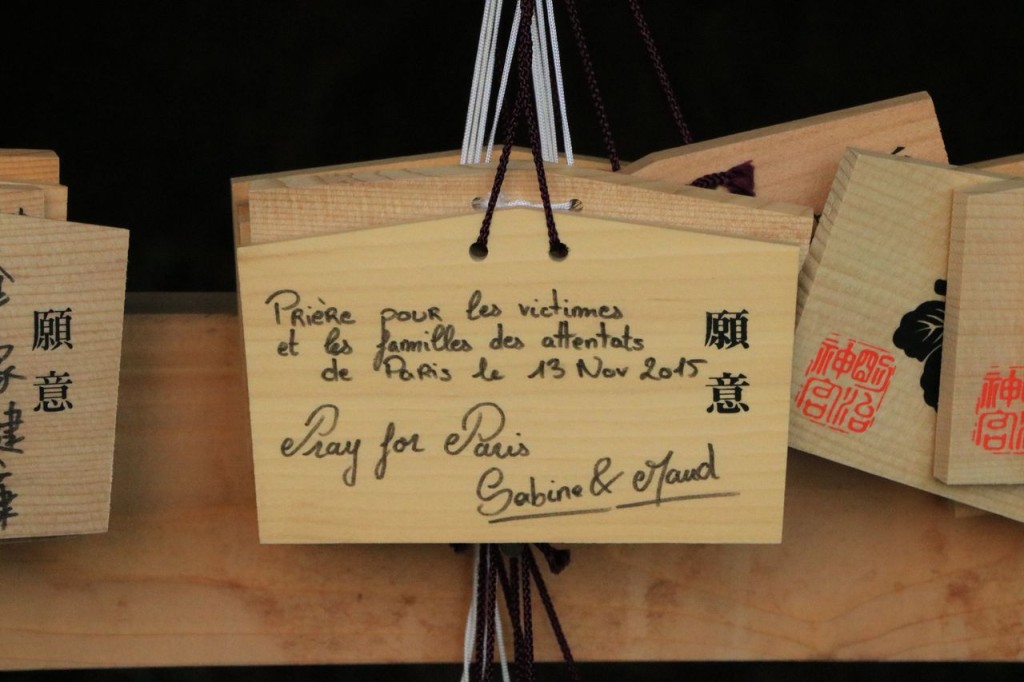 Prière pour les victimes
et les familles des attentats
de Paris le 13 Nov 2015
Pray for Paris
Sabine & Maud
願意
願意
明治神宮
神宮